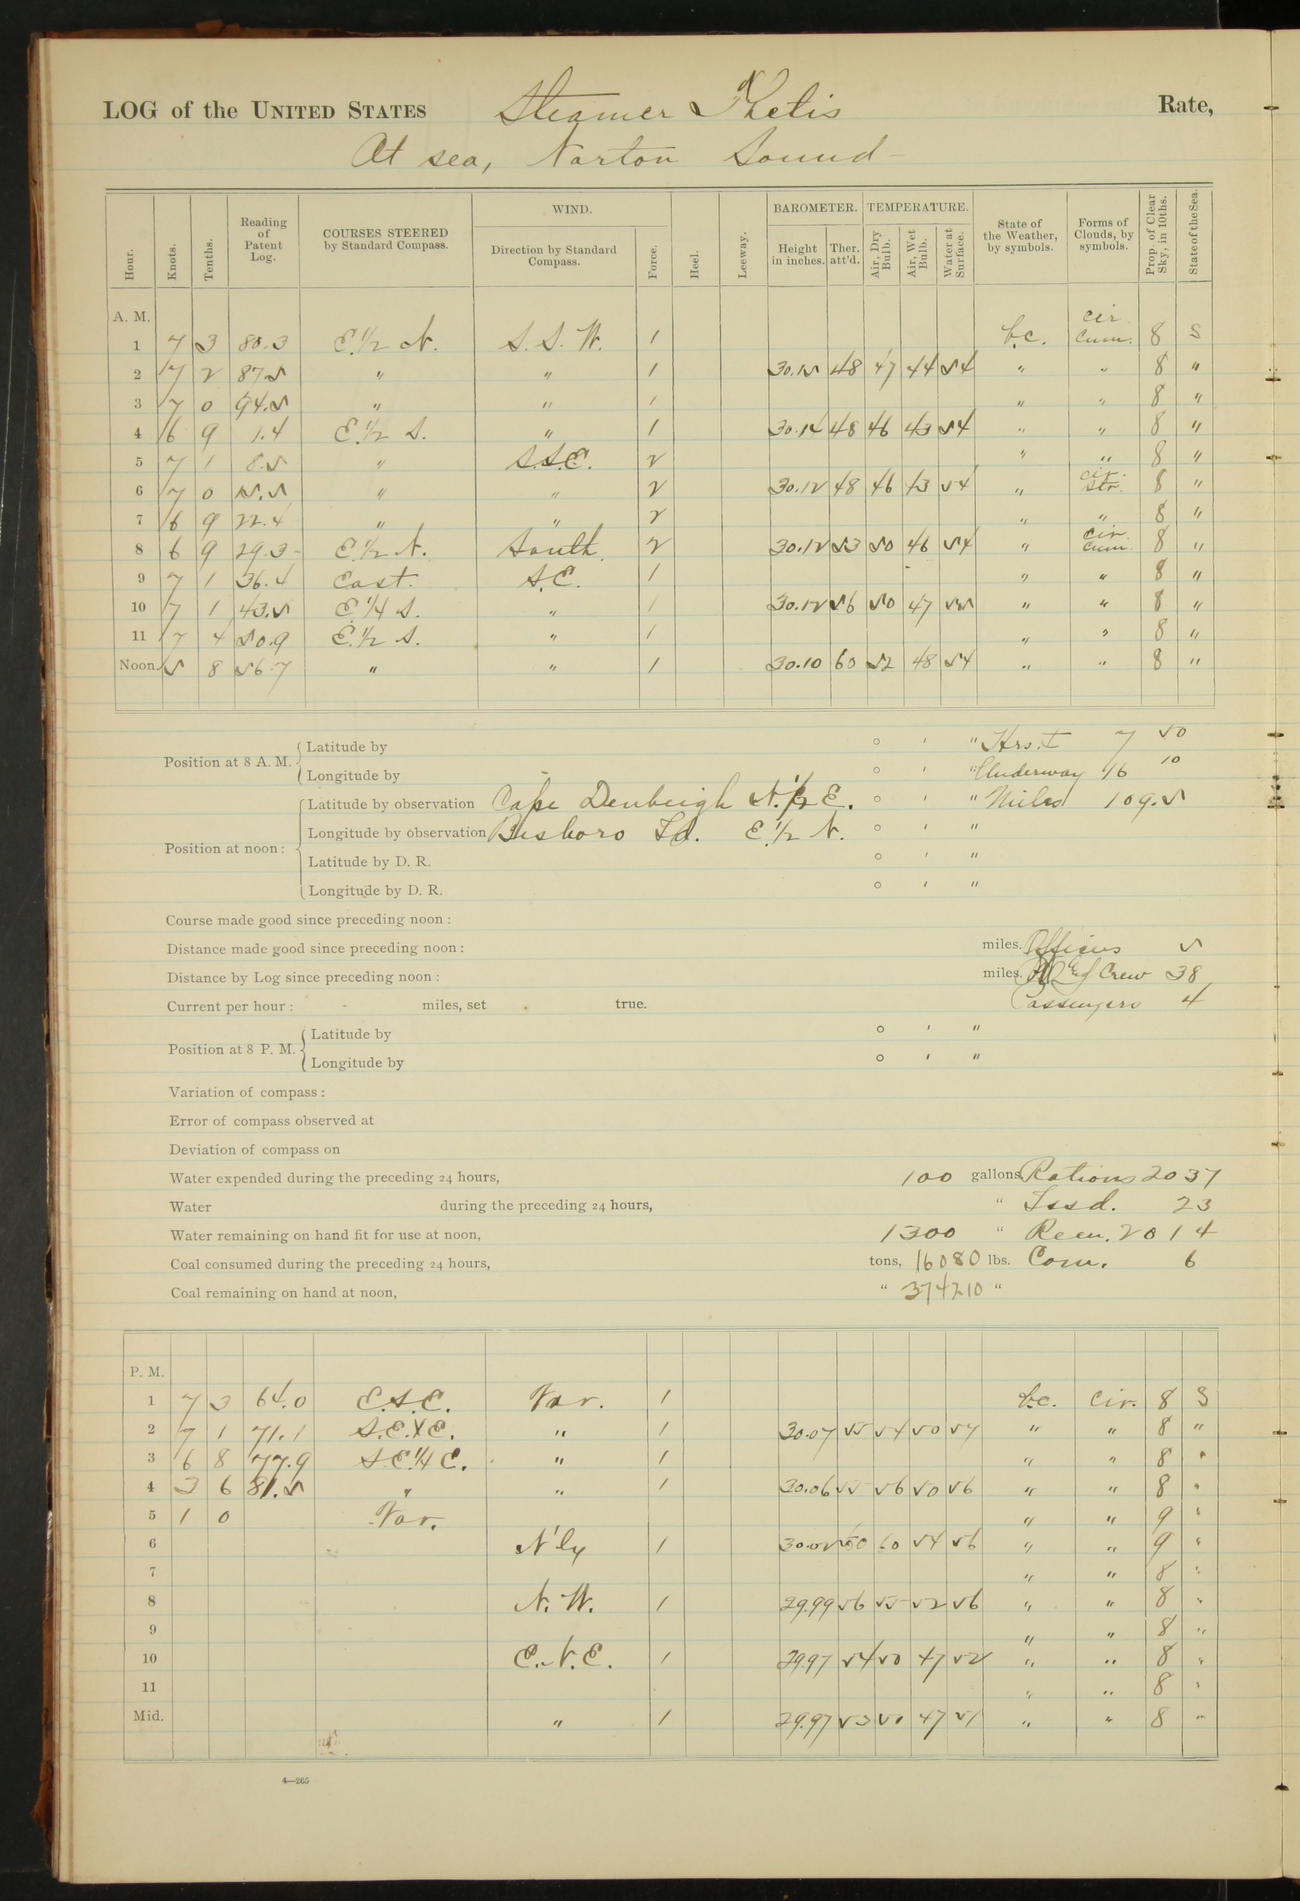 LOG of the UNITED STATES Steamer Thetis Rate,
At sea, Norton Sound
Hour. Knots. Tenths. Reading of Patent Log. COURSES STEERED by Standard Compass. WIND. Direction by Standard Compass. Force. Heel. Leeway. BAROMETER. Height in inches. Ther. att'd. TEMPERATURE. Air, Dry Bulb. Air, Wet Bulb. Water at Surface. State of the Weather, by symbols. Forms of Clouds, by symbols. Prop. of Clear Sky, in 10ths. State of the Sea.
A. M.
1 7 3 80.3 E. 1/2 N. S. S. W. 1 b.c. cir. cum. 8 S
2 7 2 87.5 " " 1 30.15 48 47 44 54 " " 8 "
3 7 0 94.5 " " 1 " " 8 "
4 6 9 1.4 E. 1/2 S. " 1 30.14 48 46 43 54 " " 8 "
5 7 1 8.5 " S.S.E. 2 " " 8 "
6 7 0 15.5 " " 2 30.12 48 46 43 54 " cir. str. 8 "
7 6 9 22.4 " " 2 " " 8 "
8 6 9 29.3 E. 1/2 N. South 2 30.12 53 50 46 54 " cir. cum. 8 "
9 7 1 36.4 East. S.E. 1 " " 8 "
10 7 1 43.5 E. 1/4 S. " 1 30.12 56 50 47 55 " " 8 "
11 7 4 50.9 E. 1/2 S. " 1 " " 8 "
Noon. 5 8 56.7 " " 1 30.10 60 52 48 54 " " 8 "
Position at 8 A. M. Latitude by ° ' " Hrs. 7 50
Longitude by ° ' " Underway 16 10
Position at noon: Latitude by observation Cape Denbeigh N. 1/2 E. ° ' " Miles 109.5
Longitude by observation Besboro Id. E. 1/2 N. ° ' "
Latitude by D. R. ° ' "
Longitude by D. R. ° ' "
Course made good since preceding noon:
Distance made good since preceding noon: miles. Officers 5
Distance by Log since preceding noon: miles. Crew 38
Current per hour: miles, set true. Passengers 4
Position at 8 P. M. Latitude by ° ' "
Longitude by ° ' "
Variation of compass:
Error of compass observed at
Deviation of compass on
Water expended during the preceding 24 hours, 100 gallons Rations 2037
Water during the preceding 24 hours, " Issd. 23
Water remaining on hand fit for use at noon, 1300 " Rem. 2014
Coal consumed during the preceding 24 hours, tons, 16080 lbs. Com. 6
Coal remaining on hand at noon, " 374210 "
P. M.
1 7 3 64.0 E.S.E. Var. 1 b.c. cir. 8 S
2 7 1 71.1 S.E. x E. " 1 30.07 55 54 50 57 " " 8 "
3 6 8 77.9 S.E. 1/4 E. " 1 " " 8 "
4 3 6 81.5 " " 1 30.06 55 56 50 56 " " 8 "
5 1 0 Var. " " 9 "
6 N'ly 1 30.02 60 54 56 " " 9 "
7 " " 8 "
8 N. W. 1 29.99 56 55 52 56 " " 8 "
9 " " 8 "
10 E.N.E. 1 29.97 54 50 47 52 " " 8 "
11 " " 8 "
Mid. " 1 29.97 53 50 47 51 " " 8 "
4—265